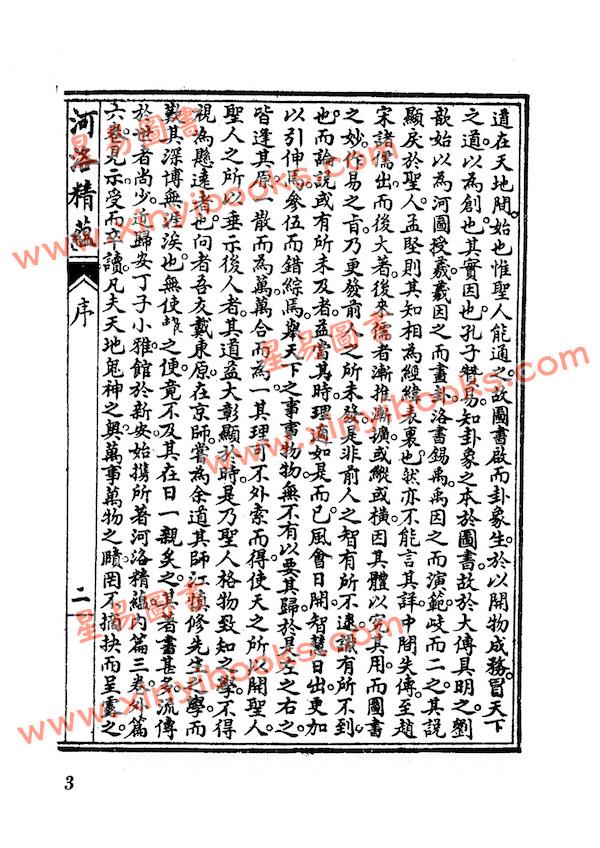 道在天地開始也惟聖人能通之故圖書啟而卦象生於以開物成務冒天下
之道以為創也其實因也孔子雙易知卦象之本於圖書故於大傳具明之劉
歆始以為河圖授羲羲因之而畫卦洛書錫禹禹因之而演範歧而二之其說
顯戾於聖人孟堅則其知相為經緯表裏也然亦不能言其詳中間失傳至趙
宋諸儒出而後大著後來儒者漸推漸擴或縱或橫因其體以究其用而圖書
之妙作易之旨乃更發前人之所未發是非前人之智有所不逮識有所不到
也而論說或有所未及者益當其時理適如是而已風會日開智慧日出更加
以引伸焉參伍而錯綜焉舉天下之事事物物無不有以要其歸於是左之右之
皆逢其原一散而為萬萬合而為一其理可不外索而得使天之所以開聖人
聖人之所以垂示後人者其道益大彰顯於時是乃聖人格物致知之學不得
視為懸遠者也向者吾友戴東原在京師嘗為余道其師江慎修先生之學而
歎其深博無涯涘也無使之便竟不及其在日一親炙之其著書甚多流傳
於世者尚少道歸安丁子小雅館於新安始攜所著河洛精蘊內篇三卷外篇
六卷見示受而卒讀凡夫天地鬼神之奧萬事萬物之賾罔不摘抉而呈露之
河洛精蘊
序
二
3
星易圖書
www.xinyibooks.com
星易圖書
www.xinyibooks.com
星易圖書
www.xinyibooks.com